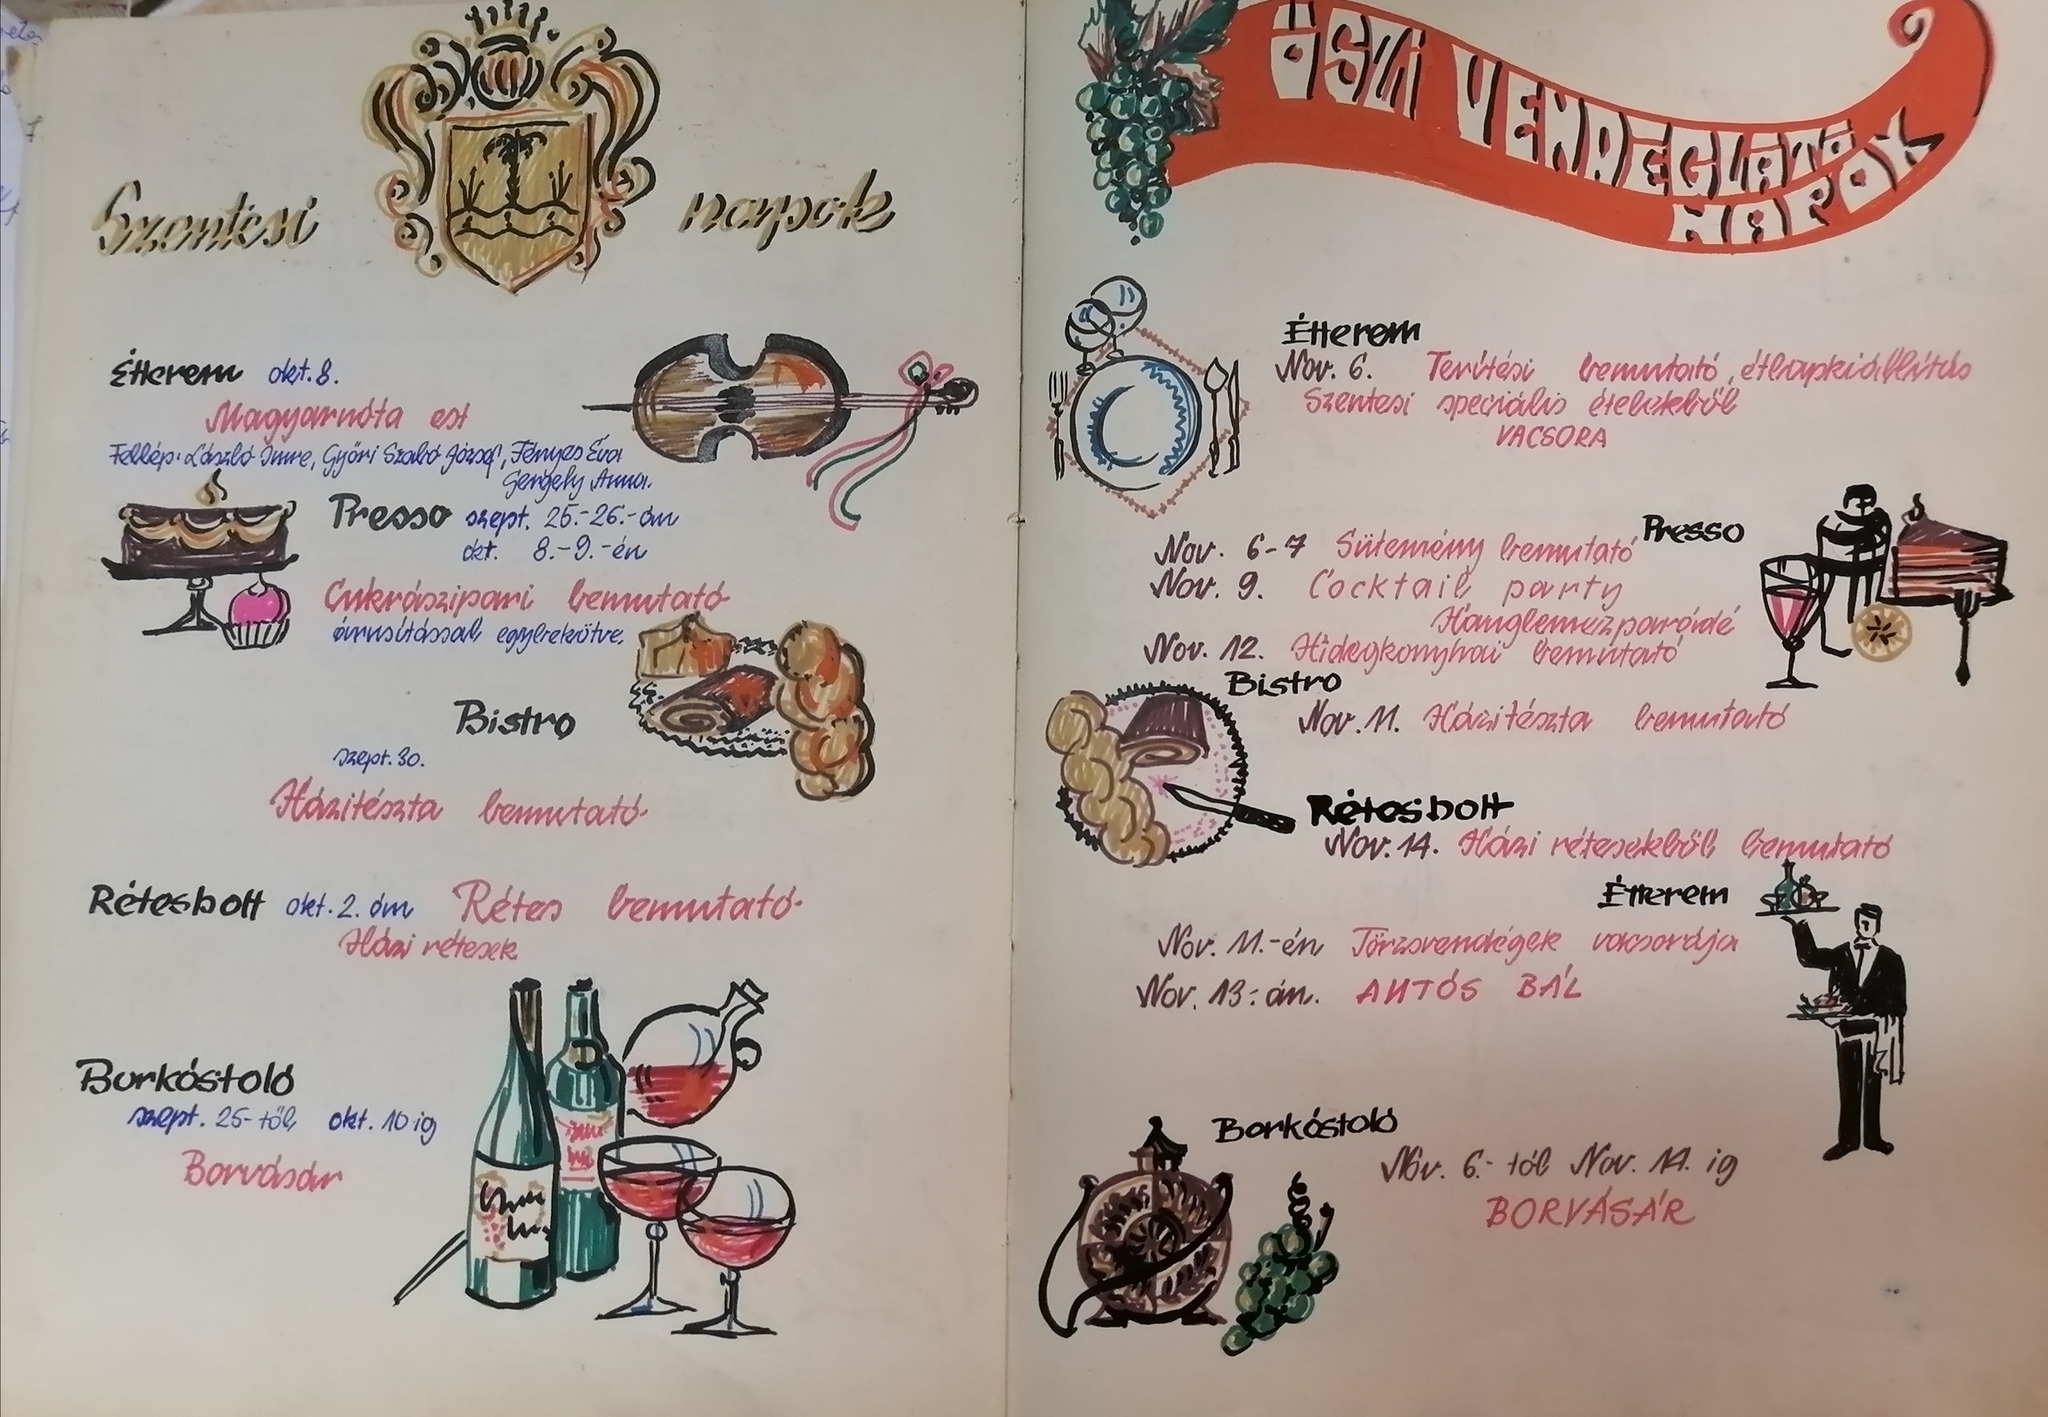 Szentesi napok
Étterem okt. 8.
Magyarnóta est
Fellép: László Imre, Győri Szabó József, Fényes Éva
Gergely Anna.
Presso szept. 25.-26.-án
okt. 8.-9.-én
Cukrászipari bemutató
árusítással egybekötve.
Bistro
szept. 30.
Házitészta bemutató
Rétesbolt okt. 2. án Rétes bemutató
Házi rétesek
Borkóstoló
szept. 25-től okt. 10 ig
Borvásár
ŐSZI VENDÉGLÁTÓ
NAPOK
Étterem
Nov. 6. Terítési bemutató, étlapkiállítás
Szentesi speciális ételekből
VACSORA
Presso
Nov. 6-7 Sütemény bemutató
Nov. 9. Cocktail party
Hanglemezparádé
Nov. 12. Hidegkonyhai bemutató
Bistro
Nov. 11. Házitészta bemutató
Rétesbolt
Nov. 14. Házi rétesekből bemutató
Étterem
Nov. 11.-én Törzsvendégek vacsorája
Nov. 13-án. BÁL
Borkóstoló
Nov. 6.- tól Nov. 14. ig
BORVÁSÁR